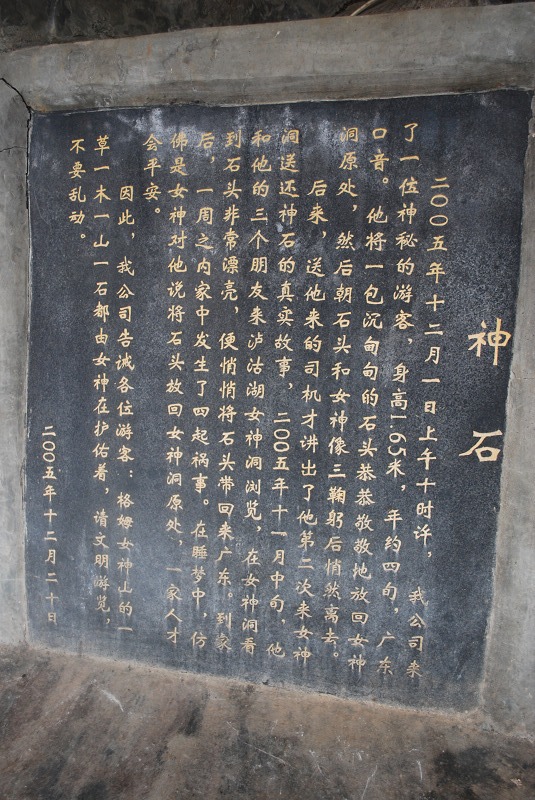 神石
二〇〇五年十二月一日上午十时许，我公司来
了一位神秘的游客，身高1.65米，年约四旬，广东
口音。他将一包沉甸甸的石头恭恭敬敬地放回女神
洞原处，然后朝石头和女神像三鞠躬后悄然离去。
后来，送他来的司机才讲出了他第二次来女神
洞送还神石的真实故事，二00五年十一月中旬，他
和他的三个朋友来泸沽湖女神洞浏览，在女神洞看
到石头非常漂亮，便悄悄将石头带回来广东。到家
后，一周之内家中发生了四起祸事。在睡梦中，仿
佛是女神对他说将石头放回女神洞原处，一家人才
会平安。
因此，我公司告诫各位游客：格姆女神山的一
草一木一山一石都由女神在护佑着，请文明游览，
不要乱动。
二〇〇五年十二月二十日